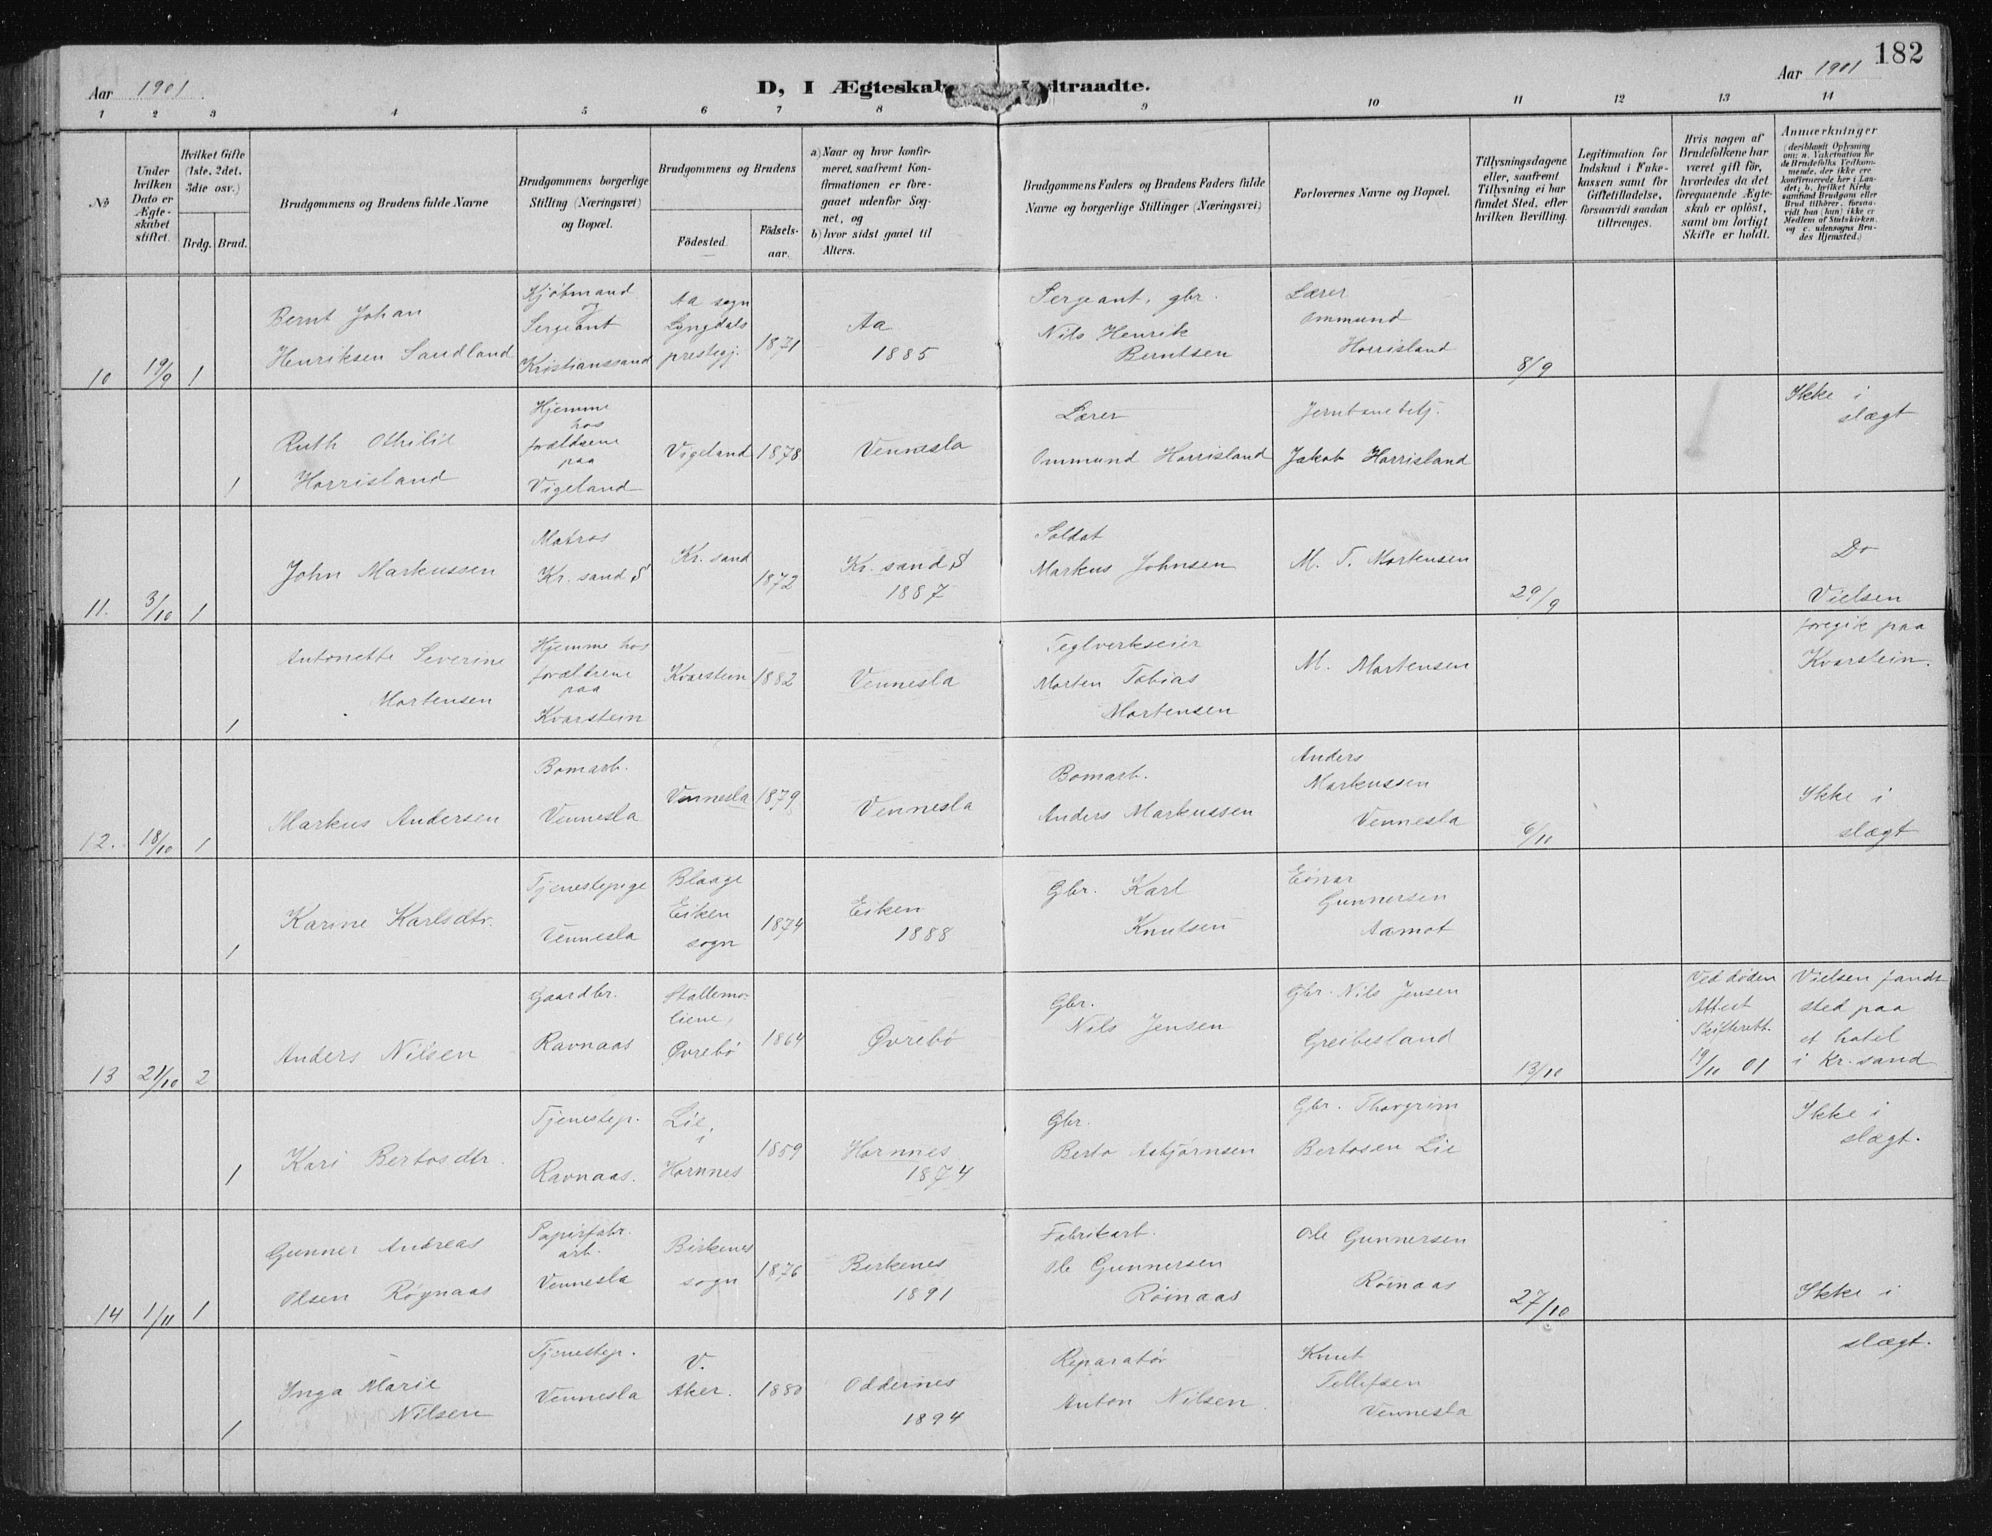 182
Aar 1901
D, I Ægteskab Indtraadte.
Aar 1901
1 2 3 4 5 6 7 8 9 10 11 12 13 14
No
Under hvilken Dato er Ægteskabet stiftet.
Hvilket Gifte (1ste, 2det, 3die osv.)
Brdg. Brud.
Brudgommens og Brudens fulde Navne
Brudgommens borgerlige Stilling (Næringsvei) og Bopæl.
Brudgommens og Brudens
Födested.
Födsels-aar.
a) Naar og hvor konfirmeret, saafremt Konfirmationen er foregaaet udenfor Sognet, og
b) hvor sidst gaaet til Alters.
Brudgommens Faders og Brudens Faders fulde Navne og borgerlige Stillinger (Næringsvei)
Forlovernes Navne og Bopæl.
Tillysningsdagene eller, saafremt Tillysning ei har fundet Sted, efter hvilken Bevilling.
Legitimation for Indskud i Enkekassen samt for Giftetilladelse, forsaavidt saadan tiltrænges.
Hvis nogen af Brudefolkene har været gift för, hvorledes da det foregaaende Ægteskab er oplöst, samt om lovligt Skifte er holdt.
Anmærkninger (deriblandt Oplysning om: a. Vakcination for de Brudefolks Vedkommende, der ikke ere konfirmerede her i Landet; b. hvilket Kirkesamfund Brudgom eller Brud tilhörer, forsaavidt han (hun) ikke er Medlem af Statskirken, og c. udensogns Brudes Hjemsted.)
10 19/9 1
Bernt Johan
Henriksen Sandland
Kjøbmand
og
Sergeant
Kristianssand
Aa sogn
Lyngdals
prestegj.
1871
Aa
1885
Sergeant, gbr.
Nils Henrik
Berntsen
Lærer
Ommund
Horrisland
8/9
1
Ruth Othilie
Horrisland
Hjemme
hos
forældrene
paa
Vigeland
Vigeland 1878
Vennesla
Lærer
Ommund Horrisland
Jernbanebetj.
Jakob Horrisland
Ikke i
slægt
11. 3/10 1
John Markussen
Matros
Kr. sand S
Kr. sand
1872
Kr. sand S
1887
Soldat
Markus Johnsen
M. T. Mortensen
29/9
Do
Vielsen
foregik paa
Kvarstein.
1
Antonette Severine
Mortensen
Hjemme hos
forældrene
paa
Kvarstein
Kvarstein 1882
Vennesla
Teglverkseier
Morten Tobias
Mortensen
M. Mortensen
12. 18/10 1
Markus Andersen
Bomarb.
Vennesla
Vennesla 1879
Vennesla
Bomarb.
Anders Markussen
Anders
Markussen
Vennesla
6/10
Ikke i
slægt
1
Karine Karlsdtr.
Tjenestepige
Vennesla
Blaage
Eiken
sogn
1874
Eiken
1888
Gbr. Karl
Knutsen
Einar
Gunnersen
Aamot
13 21/10 2
Anders Nilsen
Gaardbr.
Ravnaas
Stallemo-
liene,
Øvrebø
1864
Øvrebø
Gbr.
Nils Jensen
Gbr. Nils Jensen
Greibesland
13/10
Ved døden
Attest
Skifterett.
19/10 01
Vielsen fandt
sted paa
et hotel
i Kr. sand
1
Kari Bertosdtr.
Tjenestep.
Ravnaas.
Lie,
i
Hornnes
1859
Hornnes
1874
Gbr.
Berto Asbjørnsen
Gbr. Thorgrim
Bertosen Lie
Ikke i
slægt.
14 1/11 1
Gunner Andreas
Olsen Røynaas
Papirfabr.
arb.
Vennesla
Birkenes
sogn
1876
Birkenes
1891
Fabrikarb.
Ole Gunnersen
Røinaas
Ole Gunnersen
Røinaas
27/10
Ikke i
slægt.
1
Inga Marie
Nilsen
Tjenestep.
Vennesla
V.
Aker.
1880
Oddernes
1894
Reparatør
Anton Nilsen.
Knut
Tellefsen
Vennesla